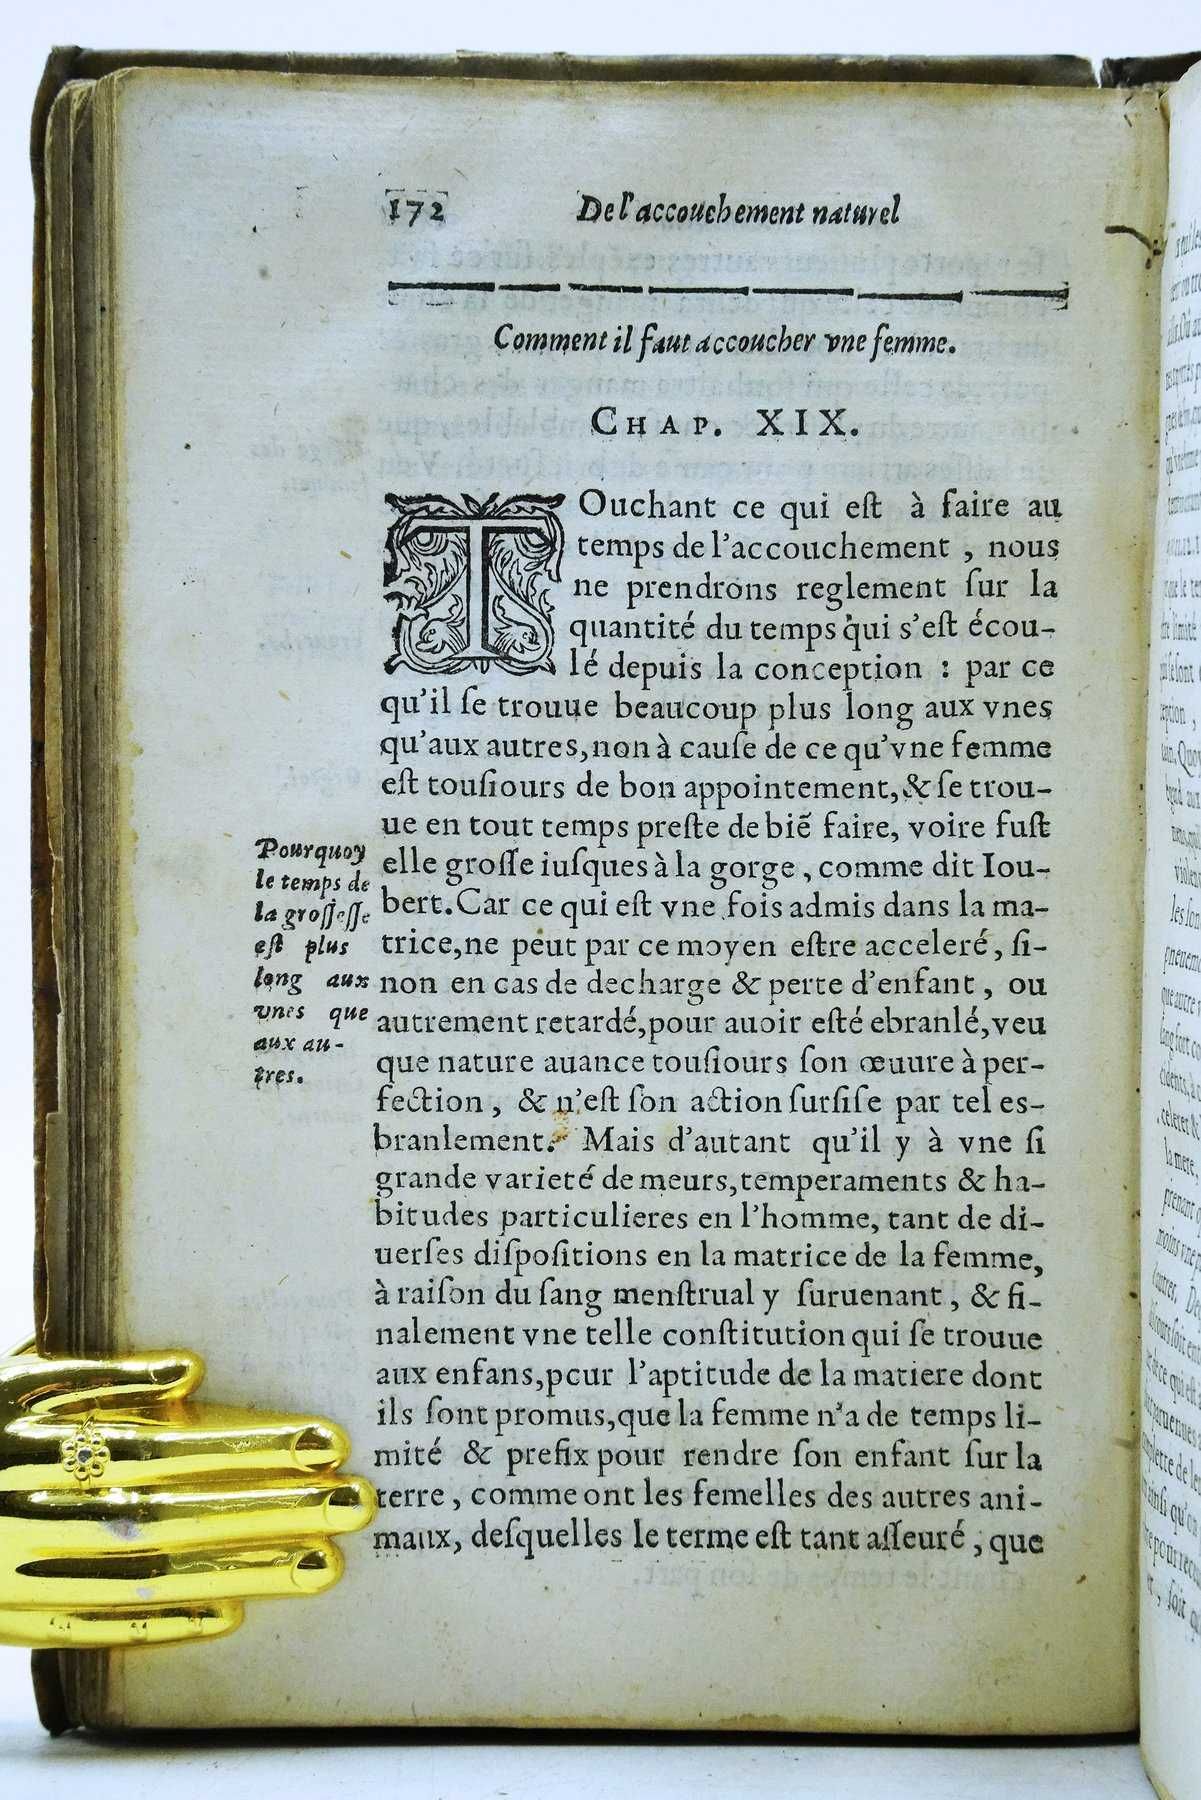 172 De l'accouchement naturel
Comment il faut accoucher vne femme.
CHAP. XIX.
TOuchant ce qui est à faire au
temps de l'accouchement, nous
ne prendrons reglement sur la
quantité du temps qui s'est écou-
lé depuis la conception : par ce
qu'il se trouue beaucoup plus long aux vnes
qu'aux autres, non à cause de ce qu'vne femme
est tousiours de bon appointement, & se trou-
ue en tout temps preste de biẽ faire, voire fust
elle grosse iusques à la gorge, comme dit Iou-
bert. Car ce qui est vne fois admis dans la ma-
trice, ne peut par ce moyen estre acceleré, si-
non en cas de decharge & perte d'enfant, ou
autrement retardé, pour auoir esté ebranlé, veu
que nature auance tousiours son œuure à per-
fection, & n'est son action sursise par tel es-
branlement. Mais d'autant qu'il y à vne si
grande varieté de meurs, temperaments & ha-
bitudes particulieres en l'homme, tant de di-
uerses dispositions en la matrice de la femme,
à raison du sang menstrual y suruenant, & fi-
nalement vne telle constitution qui se trouue
aux enfans, pour l'aptitude de la matiere dont
ils sont promus, que la femme n'a de temps li-
mité & prefix pour rendre son enfant sur la
terre, comme ont les femelles des autres ani-
maux, desquelles le terme est tant asseuré, que
Pourquoy
le temps de
la grossesse
est plus
long aux
vnes que
aux au-
tres.